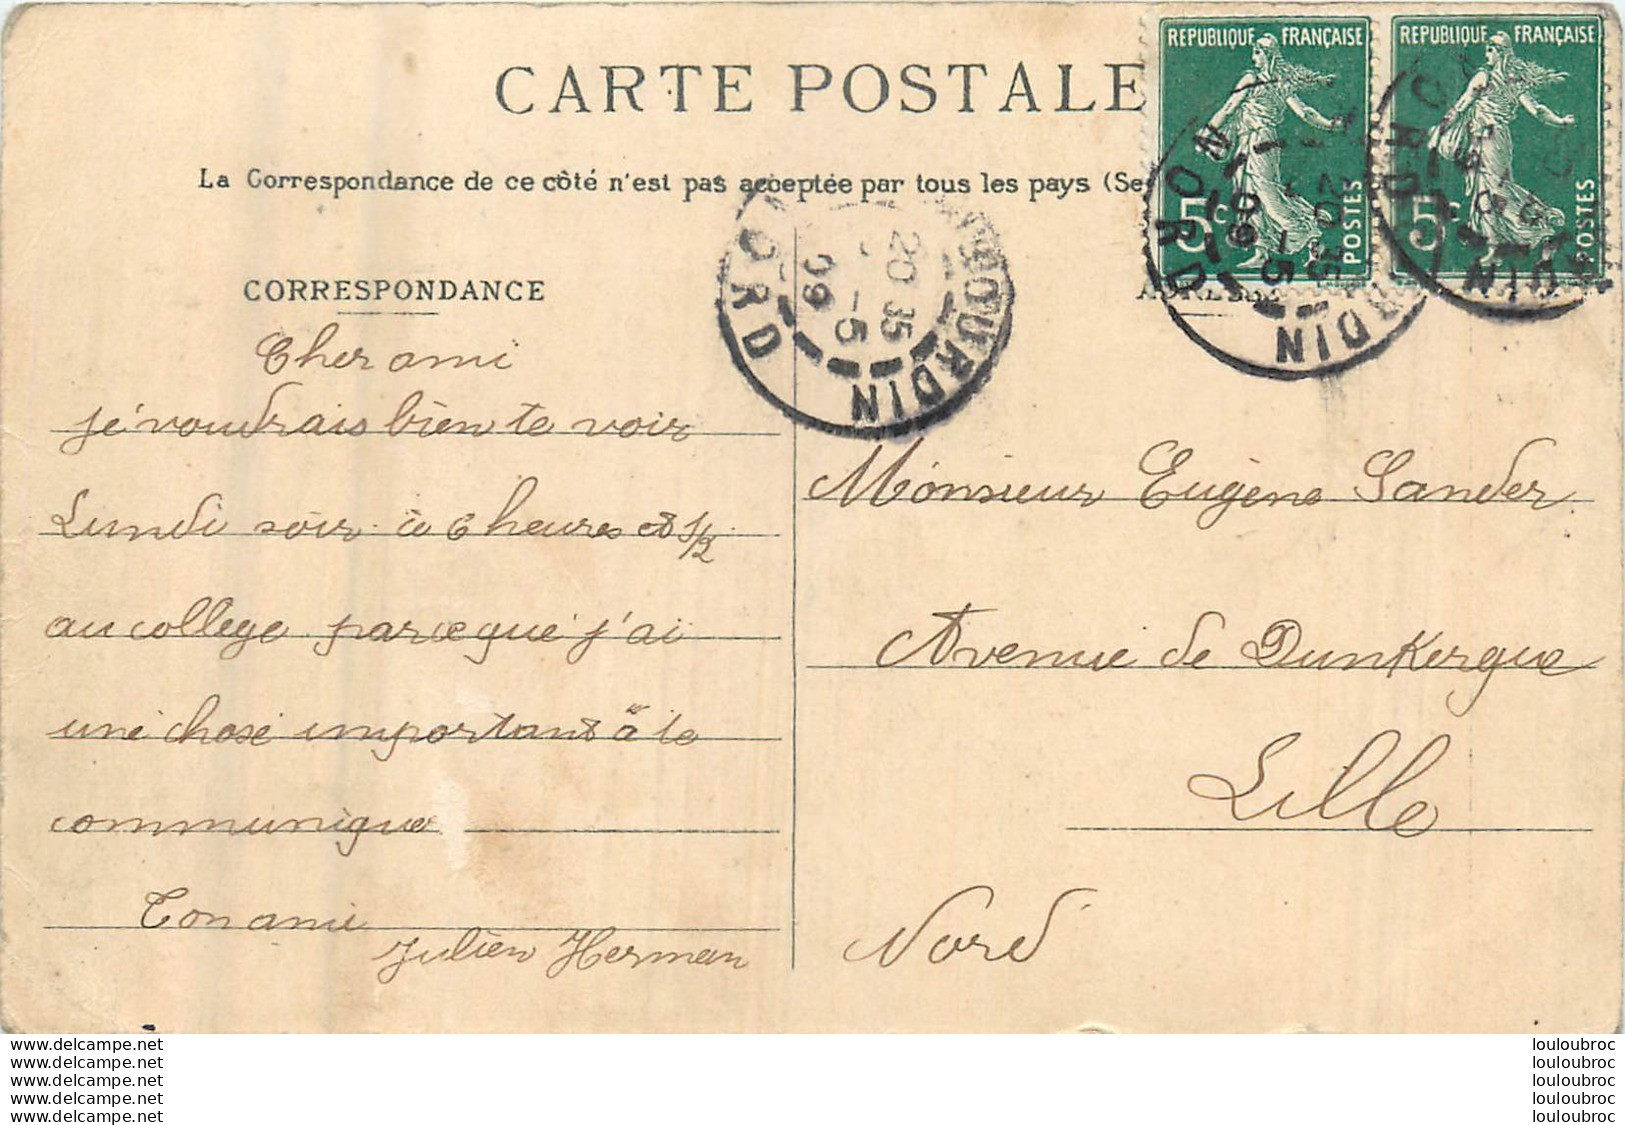 CARTE POSTALE
La Correspondance de ce côté n'est pas acceptée par tous les pays (Se
REPUBLIQUE FRANÇAISE
5c POSTES
REPUBLIQUE FRANÇAISE
5c POSTES
NORD
20 35
-5
09
NORD
20 35
-5
09
CORRESPONDANCE
Cher ami
je voudrais bien te voir
Lundi soir à 6 heures et 1/2
au college parceque j'ai
une chose important à te
communique
Ton ami
Julien Herman
Monsieur Eugène Sander
Avenue de Dunkerque
Lille
Nord
www.delcampe.net
www.delcampe.net
www.delcampe.net
www.delcampe.net
www.delcampe.net
louloubroc
louloubroc
louloubroc
louloubroc
louloubroc